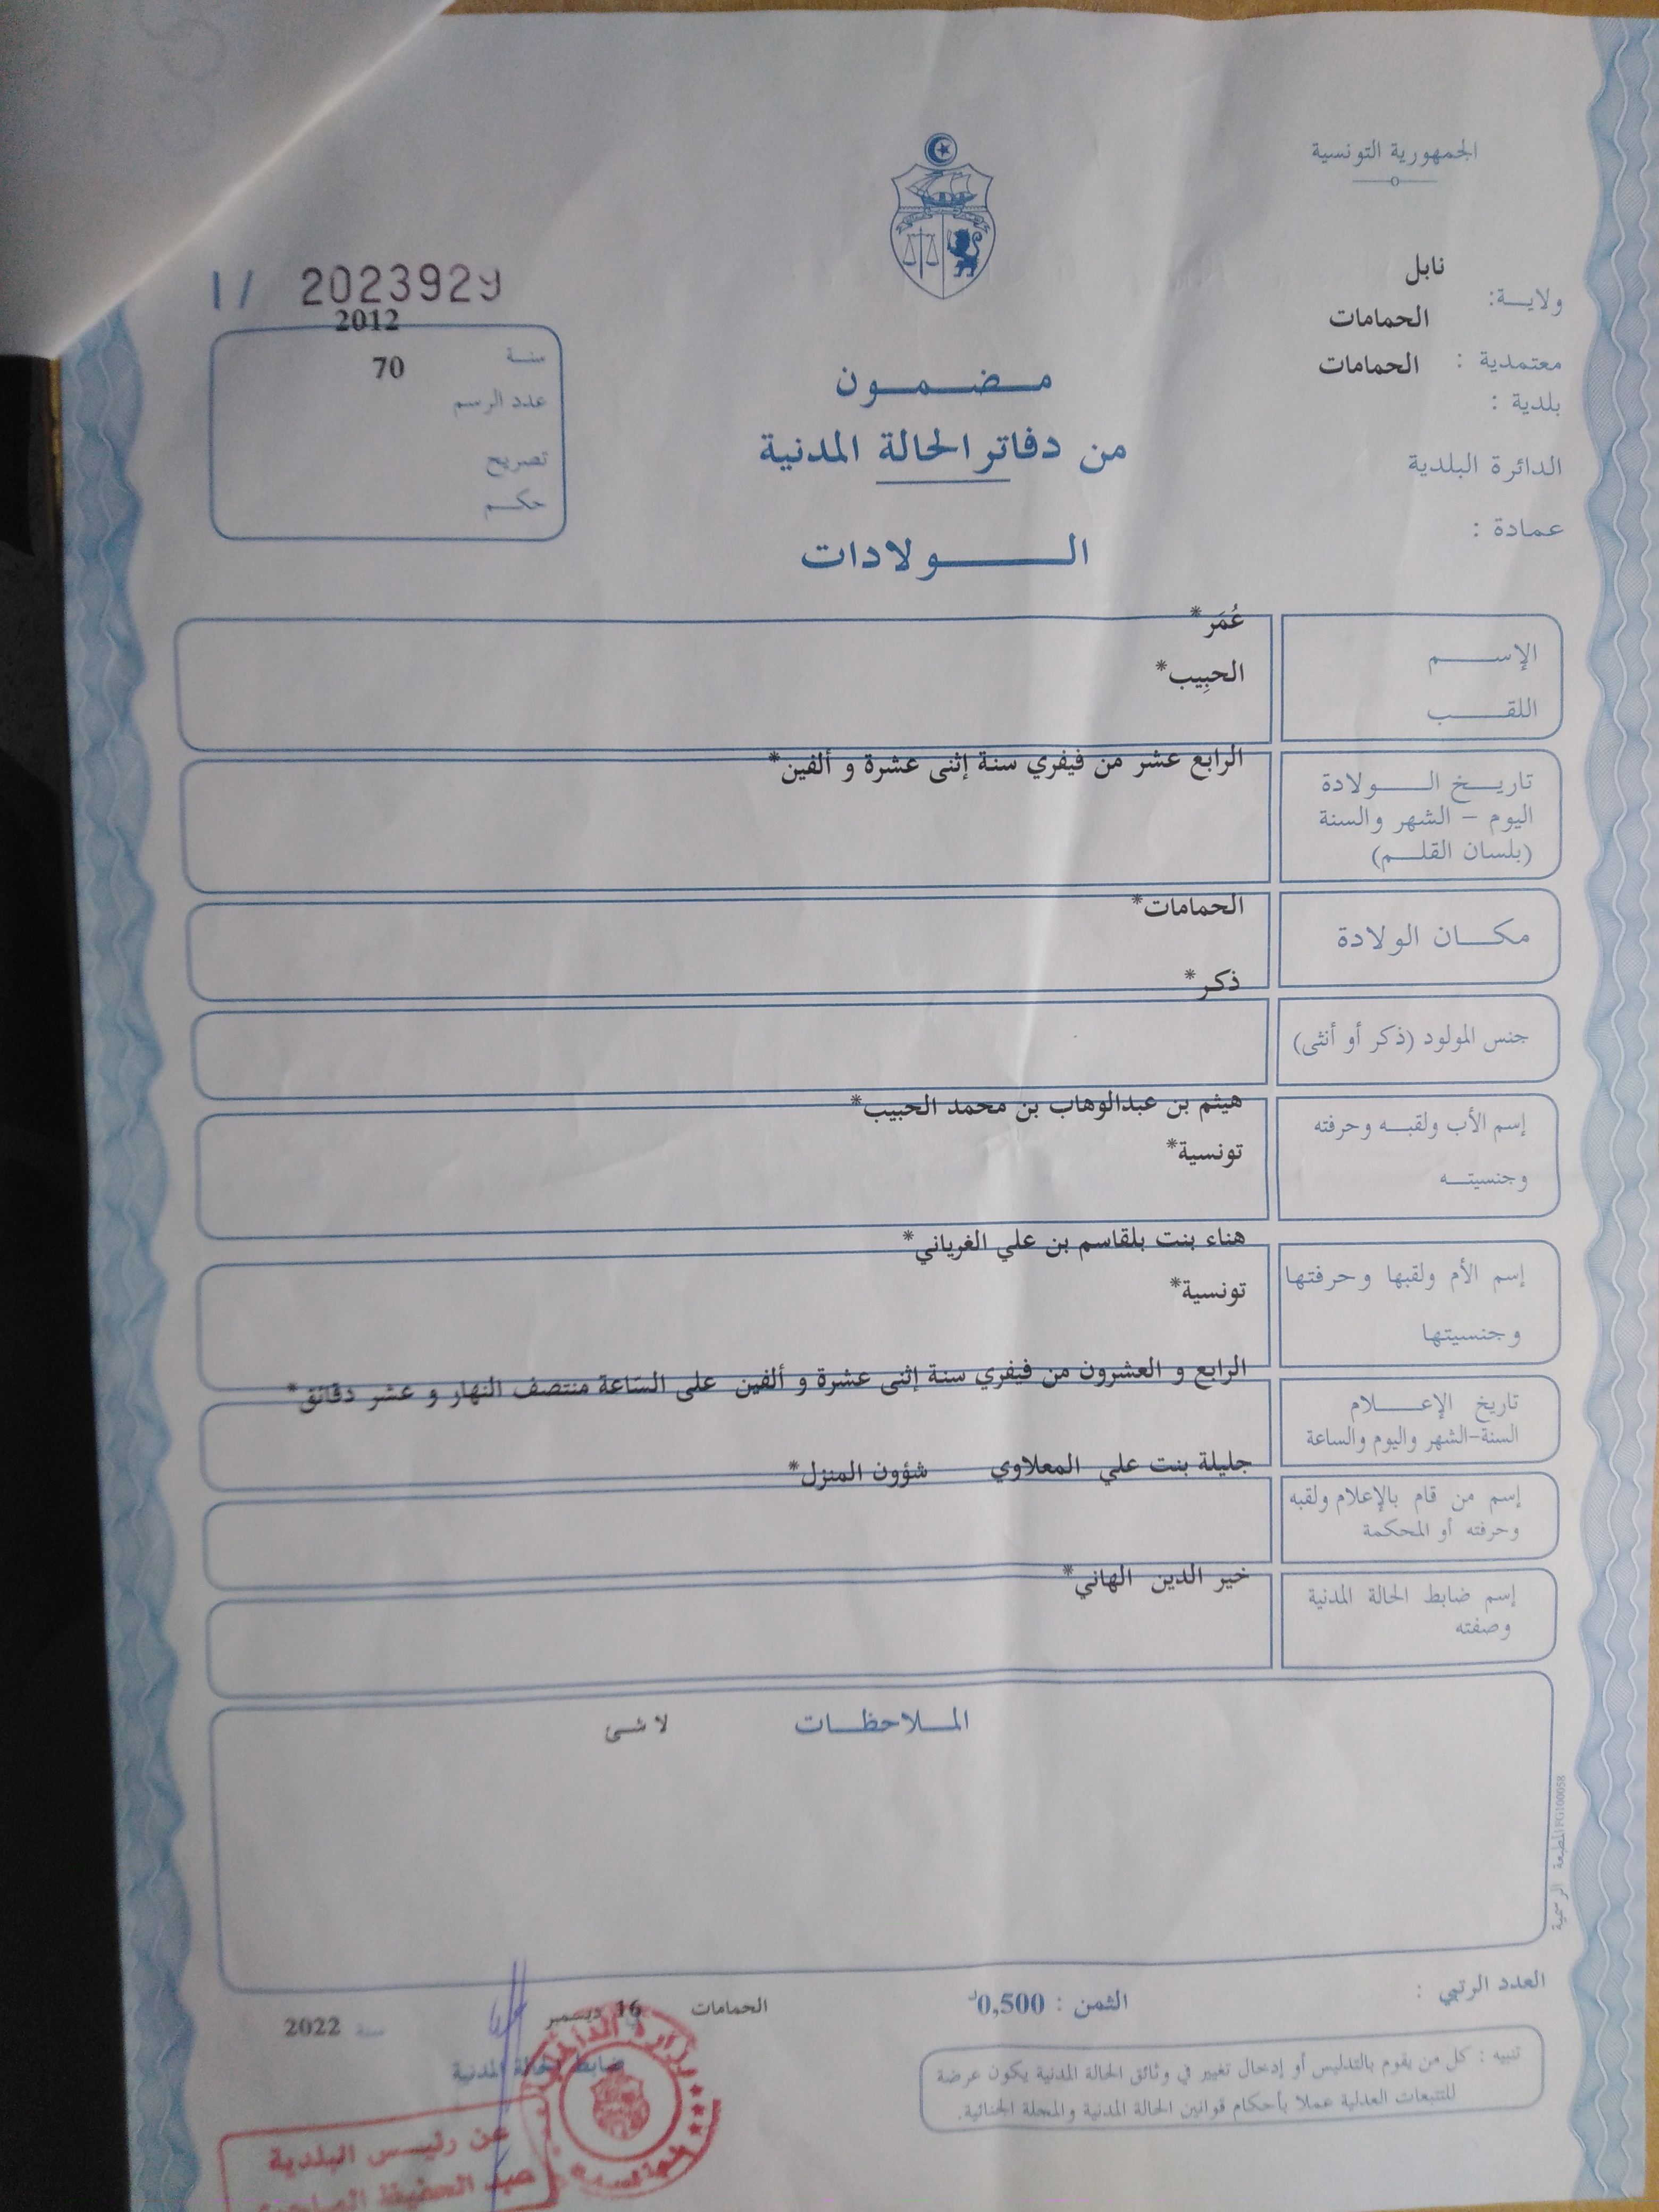 الجمهورية التونسية
ولايـــة: نابل
معتمدية : الحمامات
بلدية : الحمامات
الدائرة البلدية
عمادة :
1/ 2023929
سنــة 2012
عدد الرسم 70
تصريح
حكـــم
مـــضـــمـــون
من دفاتر الحالة المدنية
الـــــــولادات
الإســــــم عُمَر*
اللقــــــب الحبِيب*
تاريـــخ الــــولادة الرابع عشر من فيفري سنة إثنى عشرة و ألفين*
اليوم – الشهر والسنة
(بلسان القلـــم)
مكـــان الولادة الحمامات*
جنس المولود (ذكر أو أنثى) ذكر*
إسم الأب ولقبــه وحرفته هيثم بن عبدالوهاب بن محمد الحبيب*
وجنسيتــــه تونسية*
إسم الأم ولقبها وحرفتها هناء بنت بلقاسم بن علي الغرياني*
وجنسيتها تونسية*
تاريخ الإعـــــلام الرابع و العشرون من فيفري سنة إثنى عشرة و ألفين على الساعة منتصف النهار و عشر دقائق*
السنة-الشهر واليوم والساعة
إسم من قام بالإعلام ولقبه جليلة بنت علي المعلاوي شؤون المنزل*
وحرفته أو المحكمة
إسم ضابط الحالة المدنية خير الدين الهاني*
وصفته
المـــلاحظـــات لا شىء
المطبعة الرسمية FG100058
العدد الرتبي :
الثمن : 0,500د
الحمامات 16 ديسمبر سنة 2022
ضابط الحالة المدنية
تنبيه : كل من يقوم بالتدليس أو إدخال تغيير في وثائق الحالة المدنية يكون عرضة
للتتبعات العدلية عملا بأحكام قوانين الحالة المدنية والمجلة الجنائية.
وزارة الداخلية
عن رئيس البلدية